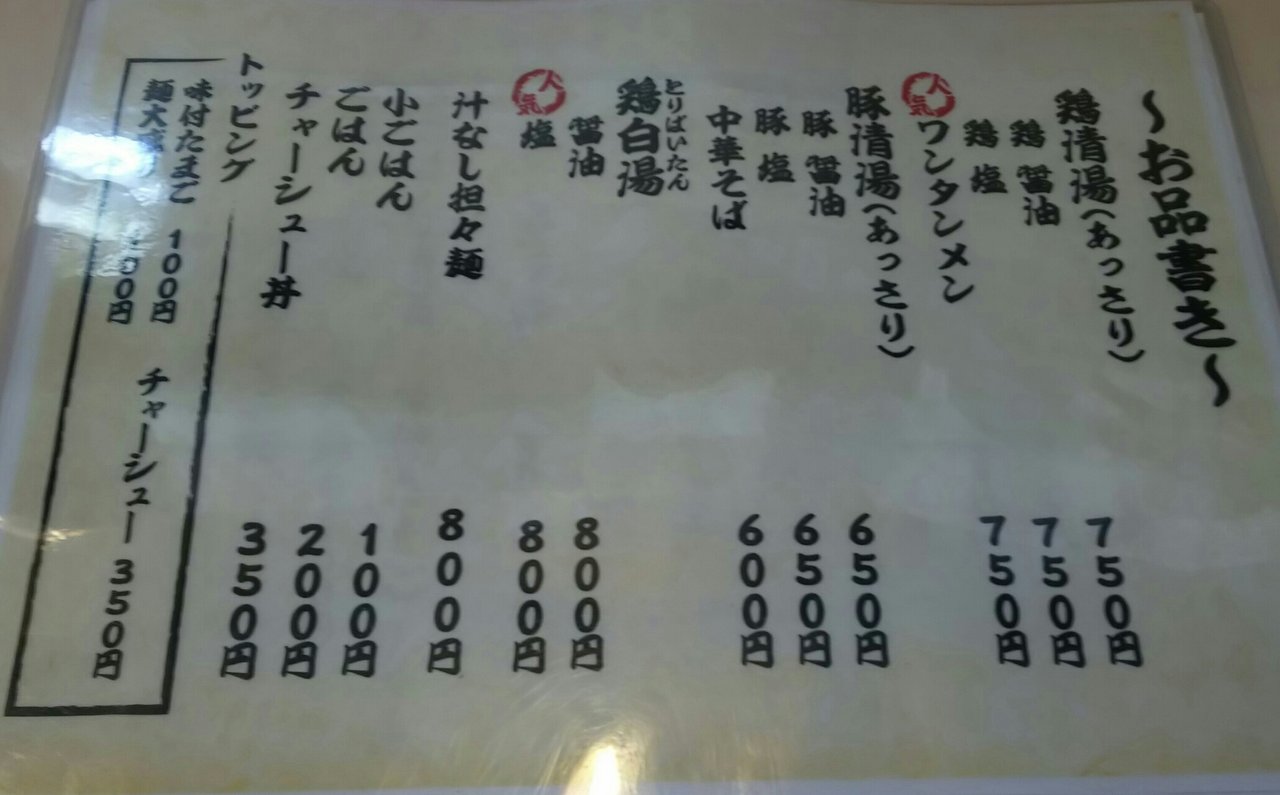 〜お品書き〜
鶏清湯(あっさり)
鶏 醤油 750円
鶏 塩 750円
人気 ワンタンメン 750円
豚清湯(あっさり)
豚 醤油 650円
豚 塩 650円
中華そば 600円
とりぱいたん
鶏白湯
醤油 800円
人気 塩 800円
汁なし担々麺 800円
小ごはん 100円
ごはん 200円
チャーシュー丼 350円
トッピング
味付たまご 100円 チャーシュー 350円